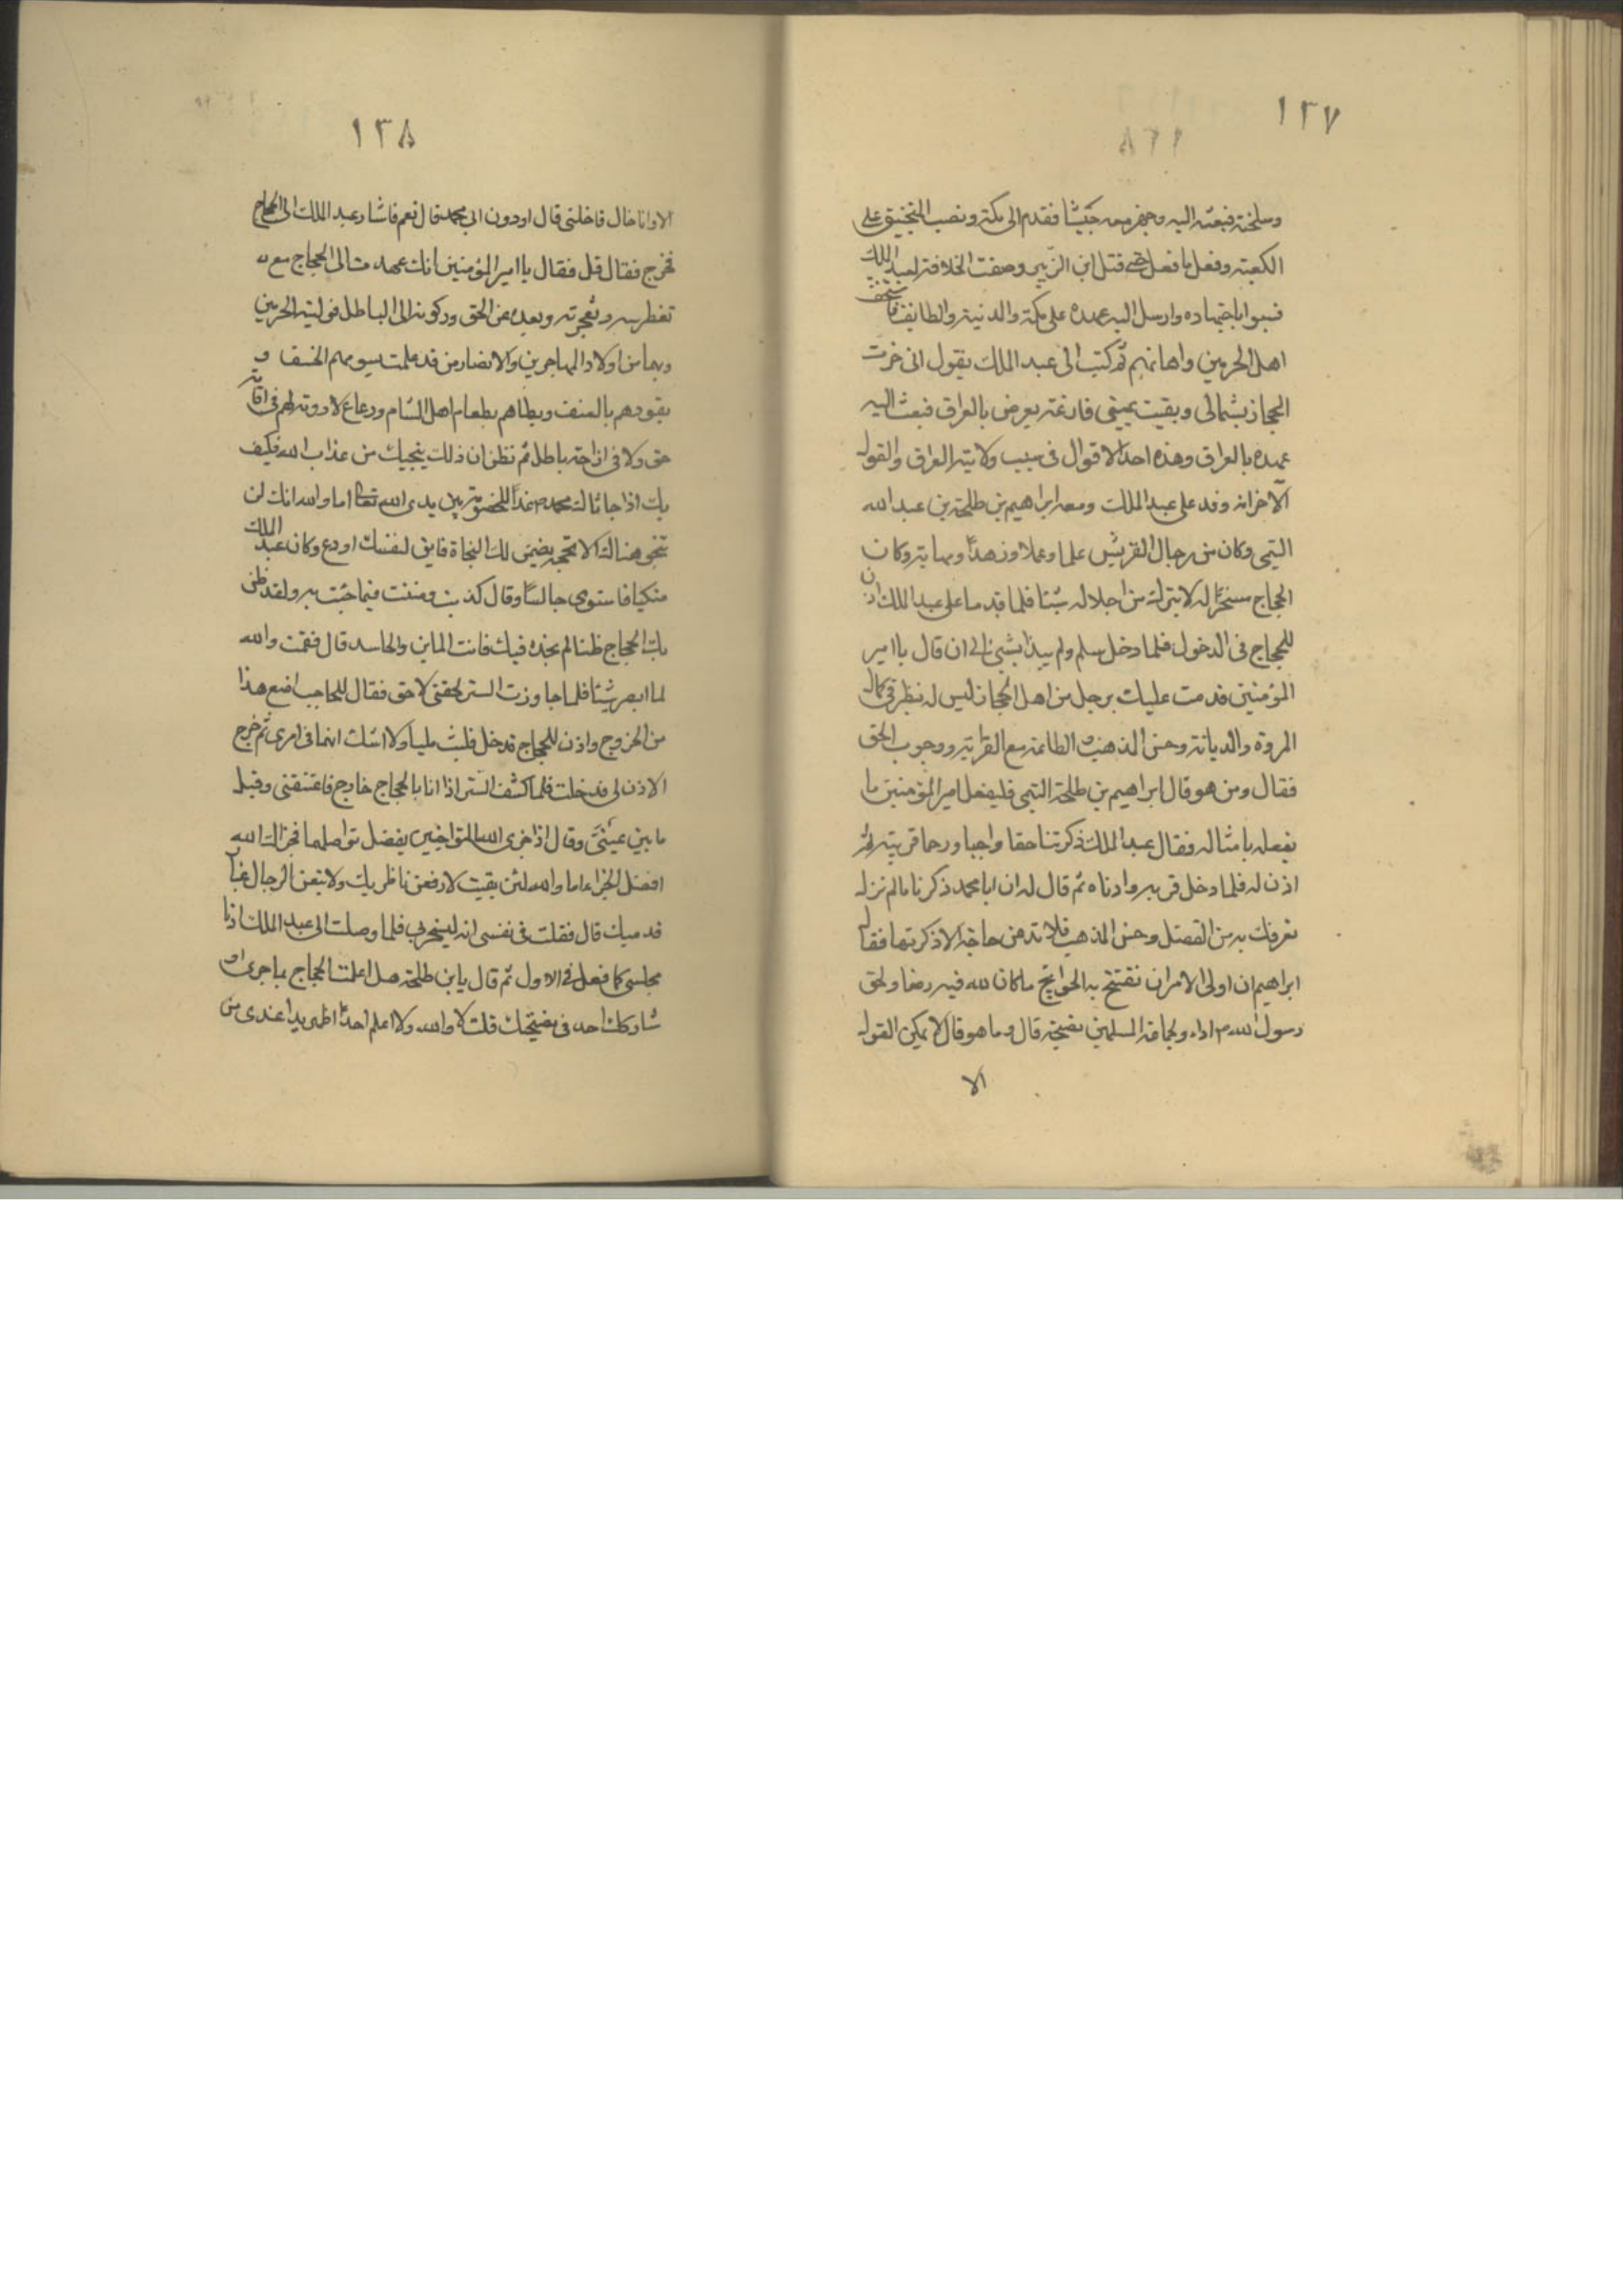 ١٣٧
وسلخته فبعثه اليه وجهز معه جيشا فقدم الى مكة ونصب المنجنيق على
الكعبة وفعل ما فعل حتى قتل ابن الزبير وصفت الخلافة لعبد الملك
فسبوا باجتهاده وارسل اليه عهده على مكة والمدينة والطايف فاستخف
اهل الحرمين واهانهم ثم كتب الى عبد الملك يقول انى خزت
الحجاز بشمالى وبقيت يمينى فارغة يعرض بالعراق فبعث اليه
عهده بالعراق وهذه احد الاقوال فى سبب ولايته العراق والقول
الآخر انه وفد على عبد الملك ومعه ابراهيم بن طلحة بن عبد الله
التيمى وكان من رجال القريش علما وعملا وزهدًا ومهابة وكان
الحجاج مسخرًا له لا يترك من اجلاله شيئا فلما قدما على عبد الملك اذن
للحجاج فى الدخول فلما دخل سلم ولم يبدا بشئ الى ان قال يا امير
المؤمنين قدمت عليك برجل من اهل الحجاز ليس له نظير فى كمال
المروة والديانة وحسن المذهب والطاعة مع القرابة ووجوب الحق
فقال ومن هو قال ابراهيم بن طلحة التيمى فليفعل امير المؤمنين ما
يفعله بامثاله فقال عبد الملك ذكرتنا حقا واجبا ورحما قريبة ثم
اذن له فلما دخل قربه وادناه ثم قال له ان ابا محمد ذكرنا ما لم نزل
نعرفك به من الفضل وحسن المذهب فلا تدعن حاجة الا ذكرتها فقال
ابراهيم ان اولى الامر ان نفتتح به الحوائج ما كان لله فيه رضا ولحق
رسول الله ٢ اداء ولجماعة المسلمين نصيحة قال وما هو قال لا يمكن القول
الا
١٣٨
الا وانا خال فاخلنى قال اودون ابى محمد قال نعم فاشار عبد الملك الى الحجاج
فخرج فقال قل فقال يا امير المؤمنين انك عهدت الى الحجاج مع
تغطرسه وتعجرته وبعده عن الحق وركونه الى الباطل فوليته الحرمين
وبهما من اولاد المهاجرين والانصار من قد علمت يسومهم الخسف و
يقودهم بالعنف ويطاهم بطغام اهل الشام ورعاع لا روية لهم فى اقامة
حق ولا فى ازاحة باطل ثم تظن ان ذلك ينجيك من عذاب الله فكيف
بك اذا جاثاك محمد ٢ غدًا للخصومة بين يدى الله تعالى اما والله انك لن
تنجو هنالك الا بحجة يضمن لك النجاة فابق لنفسك او دع وكان عبد الملك
متكيا فاستوى جالسًا وقال كذبت ومننت فيما جئت به ولقد ظن
بك الحجاج ظنا لم يجده فيك فانت الماين والحاسد قال فقمت والله
لما ابصر شيئا فلما جاوزت الستر لحقنى لاحق فقال للحاجب امنع هذا
من الخروج واذن للحجاج فدخل فلبث مليا ولا اشك انهما فى امرى ثم خرج
الاذن لى فدخلت فلما كشف الستر اذا انا بالحجاج خارج فاعتنقنى وقبل
ما بين عينىّ وقال اذا جزى الله المتواخيين بفضل تواصلهما فجزاك الله
افضل الجزا عاما والله لئن بقيت لارفعن ناظريك ولاتبعن الرجال غبار
قدميك قال فقلت فى نفسى انه ليسخر بى فلما وصلت الى عبد الملك ادنا
مجلسى كما فعل فى الاول ثم قال يا بن طلحة هل اعلمت الحجاج بما جرى او
شاركك احد فى نصيحتك قلت لا والله ولا اعلم احدًا اظهر يدا عندى من